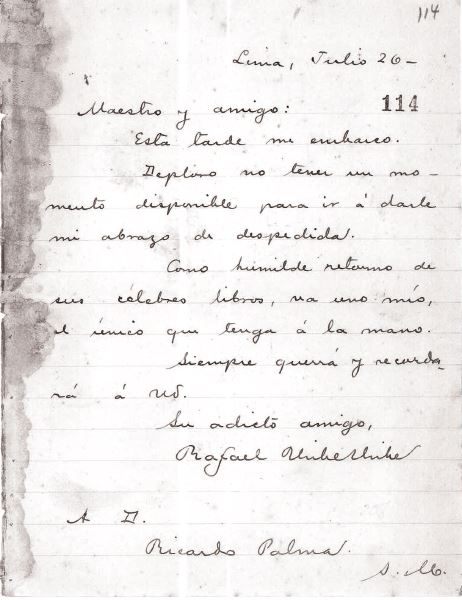 114
Lima, Julio 26-
Maestro y amigo:
114
Esta tarde me embarco.
Deploro no tener un mo-
mento disponible para ir á darle
mi abrazo de despedida.
Como humilde retorno de
sus célebres libros, va uno mío,
el único que tenga á la mano.
Siempre querrá y recorda-
rá á Ud.
Su adicto amigo,
Rafael Uribe Uribe
A D.
Ricardo Palma.
S. M.